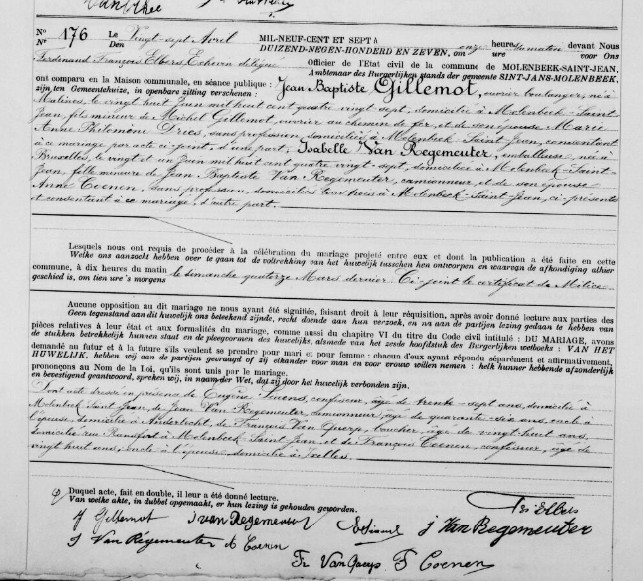 N° 176 Le Vingt-sept Avril MIL-NEUF-CENT ET SEPT à onze heures du matin devant Nous
N° Den DUIZEND-NEGEN-HONDERD EN ZEVEN, om ure voor Ons
Ferdinand François Elbers Echevin délégué Officier de l'Etat civil de la commune de MOLENBEEK-SAINT-JEAN,
Ambtenaar des Burgerlijken stands der gemeente SINT-JANS-MOLENBEEK,
ont comparu en la Maison communale, en séance publique : Jean Baptiste Gillemot, ouvrier boulanger, né à
zijn ten Gemeentehuize, in openbare zitting verschenen :
Malines, le vingt huit Juin mil huit cent quatre vingt-sept, domicilié à Molenbeek-Saint-
Jean, fils mineur de Michel Gillemot, ouvrier au chemin de fer, et de son épouse Marie
Anne Philomène Dries, sans profession, domiciliés à Molenbeek-Saint-Jean, consentant
à ce mariage par acte ci-joint, d'une part; Isabelle Van Regemeuter, emballeuse, née à
Bruxelles, le vingt et un Juin mil huit cent quatre vingt-sept, domiciliée à Molenbeek-Saint-
Jean, fille mineure de Jean Baptiste Van Regemeuter, camionneur, et de son épouse
Anne Coenen, sans profession, domiciliés tous trois à Molenbeek-Saint-Jean, ci-présents
et consentant à ce mariage, d'autre part.
Lesquels nous ont requis de procéder à la célébration du mariage projeté entre eux et dont la publication a été faite en cette
Welke ons aanzocht hebben over te gaan tot de voltrekking van het huwelijk tusschen hen ontworpen en waarvan de afkondiging alhier
commune, à dix heures du matin le dimanche quatorze Mars dernier. Ci-joint le certificat de Milice.
geschied is, om tien ure 's morgens
Aucune opposition au dit mariage ne nous ayant été signifiée, faisant droit à leur réquisition, après avoir donné lecture aux parties des
Geen tegenstand aan dit huwelijk ons beteekend zijnde, recht doende aan hun verzoek, en na aan de partijen lezing gedaan te hebben van
pièces relatives à leur état et aux formalités du mariage, comme aussi du chapitre VI du titre du Code civil intitulé : DU MARIAGE, avons
de stukken betrekkelijk hunnen staat en de pleegvormen des huwelijks, alsmede van het zesde hoofdstuk des Burgerlijken wetboeks : VAN HET
demandé au futur et à la future s'ils veulent se prendre pour mari et pour femme : chacun d'eux ayant répondu séparément et affirmativement,
HUWELIJK, hebben wij aan de partijen gevraagd of zij elkander voor man en voor vrouw willen nemen : elk hunner hebbende afzonderlijk
prononçons au Nom de la Loi, qu'ils sont unis par le mariage.
en bevestigend geantwoord, spreken wij, in naam der Wet, dat zij door het huwelijk verbonden zijn.
Dont acte dressé en présence de Eugène confiseur, âgé de trente-sept ans, domicilié à
Molenbeek-Saint-Jean, de Jean Van Regemeuter, âgé de quarante-six ans, oncle à
l'épouse, domicilié à Anderlecht, de François Van boucher, âgé de vingt-huit ans,
domicilié rue Ransfort à Molenbeek-Saint-Jean, et de François Coenen, confiseur, âgé de
vingt huit ans, oncle à l'épouse, domicilié à Ixelles.
Duquel acte, fait en double, il leur a été donné lecture.
Van welke akte, in dubbel opgemaakt, er hun lezing is gehouden geworden.
Elbers
Gillemot I van Regemeuter J Van Regemeuter
J Van Regemeuter A Coenen
Fr Van F Coenen